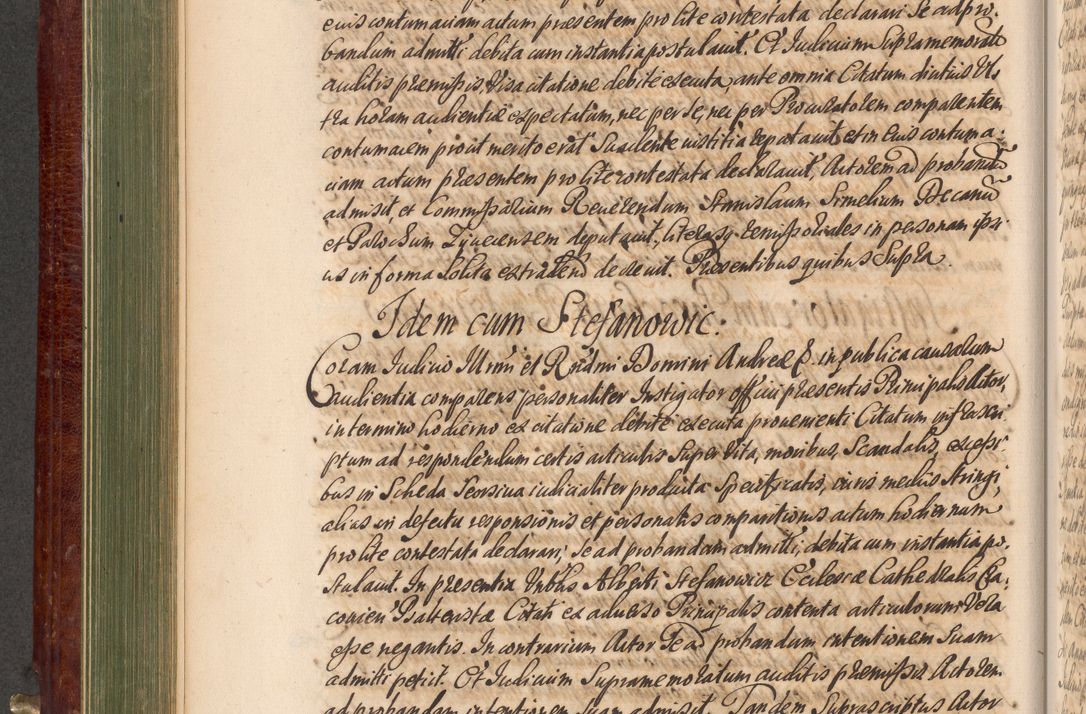 eius contumaciam actum præsentem pro lite contestata declarari Se ad pro-
bandum admitti debita cum instantia postulavit. Et Iudicium Supramemorat
auditis præmissis, Visa citatione debitè executa, ante omnia Citatum diutius Ul-
tra horam audientiæ expectatum, nec per Se, nec per Procuratorem comparentem
contumacem prout merito erat Suadente iustitia reputavit et in Eius contuma-
ciam actum præsentem pro lite contestata declaravit, Actorem ad probandũ
admisit, et Commissarium Reverendum Stanislaum Srmelium Decanũ
et Parochum Zyvecensem deputavit, literasq remissoriales in personam ipsi-
us in forma solita extradend decrevit. Præsentibus quibus Supra.
Idem cum Stefanowic:
Coram Iudicio Illrmi et Rndmi Domini Andreæ E. in publica causarum
audientia comparens personaliter Instigator officii præsentis Principalis Actor,
in termino hodierno ex citatione debitè executa provenienti Citatum infrascri-
ptum ad respondendum certis articulis Super Vita, moribus, Scandalis, excessi-
bus in Scheda Seorsiva iudicialiter producta Specificatis, iuris mediis Stringi,
alias in defectu responsionis et personalis comparitionis actum hodiernum
pro lite contestata declarari, Se ad probandum admitti, debita cum instantia po-
stulavit. In præsentia Vrblis Alberti Stefanowicz Ecclesiæ Cathedralis Cra-
covien Psalteristæ Citati ex adverso Principalis contenta articulorum Vera
esse negantis. In contrarium Actor Se ad probandum intentionem Suam
admitti petiit. Et Iudicium Supramemoratum auditis præmissis Actorem
ad probandam intentionem Suam admisit. Tandem Suprascriptus Actor